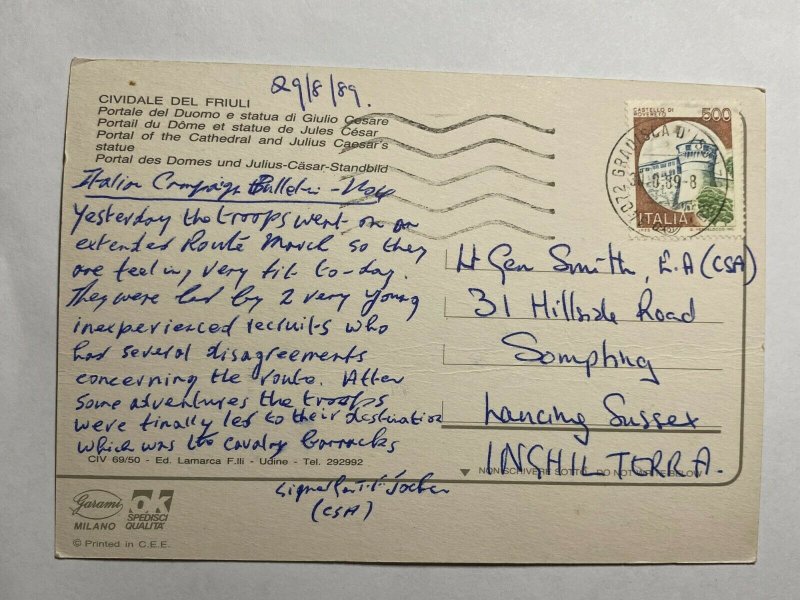 29/8/89.
CIVIDALE DEL FRIULI
Portale del Duomo e statua di Giulio Cesare
Portail du Dôme et statue de Jules César
Portal of the Cathedral and Julius Caesar's
statue
Portal des Domes und Julius-Cäsar-Standbild
Italian Campaign Bulletin -
Yesterday the troops went on an
extended Route March so they
are feeling very fit to-day.
They were led by 2 very young
inexperienced recruits who
had several disagreements
concerning the route. After
some adventures the troops
were finally led to their destination
which was the cavalry barracks
CIV 69/50 - Ed. Lamarca F.lli - Udine - Tel. 292992
Signed
(CSA)
Garami
MILANO
OK
SPEDISCI
QUALITA'
© Printed in C.E.E.
CASTELLO DI
ROVERETO
500
ITALIA
GRADISCA D'
89-8
Lt Gen Smith, E.A (CSA)
31 Hillside Road
Sompting
Lancing Sussex
INGHILTERRA.
NON SCRIVERE SOTTO DO NOT WRITE BELOW